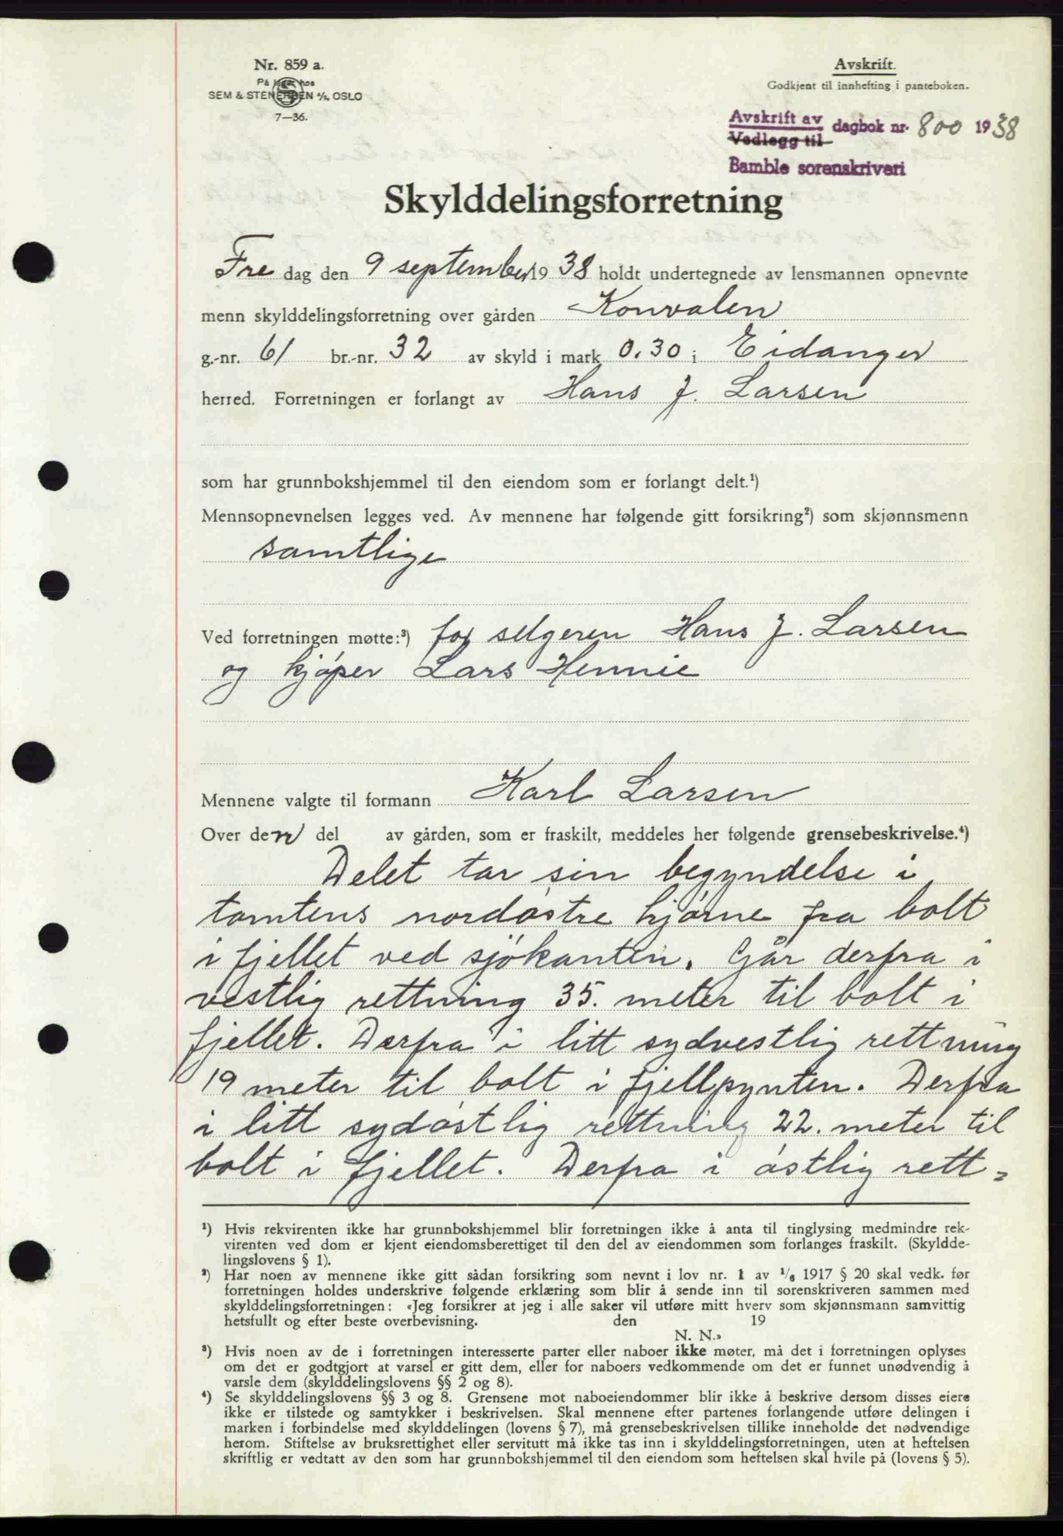 Nr. 859 a.
På lager hos
SEM & STENERSEN A/S, OSLO
7—36.
Avskrift.
Godkjent til innhefting i panteboken.
Avskrift av
Vedlegg til
dagbok nr. 800 1938
Bamble sorenskriveri
Skylddelingsforretning
Fre dag den 9 september 1938 holdt undertegnede av lensmannen opnevnte
menn skylddelingsforretning over gården Konvalen
g.-nr. 61 br.-nr. 32 av skyld i mark 0.30 i Eidanger
herred. Forretningen er forlangt av Hans J. Larsen
som har grunnbokshjemmel til den eiendom som er forlangt delt.¹)
Mennsopnevnelsen legges ved. Av mennene har følgende gitt forsikring²) som skjønnsmenn
samtlige
Ved forretningen møtte:³) for selgeren Hans J. Larsen
og kjøper Lars Hennie
Mennene valgte til formann Karl Larsen
Over den del av gården, som er fraskilt, meddeles her følgende grensebeskrivelse.⁴)
Delet tar sin begyndelse i
tomtens nordøstre hjørne fra bolt
i fjellet ved sjökanten. Går derfra i
vestlig rettning 35. meter til bolt i
fjellet. Derfra i litt sydvestlig rettning
19 meter til bolt i fjellpynten. Derfra
i litt sydøstlig rettning 22. meter til
bolt i fjellet. Derfra i østlig rett=
¹) Hvis rekvirenten ikke har grunnbokshjemmel blir forretningen ikke å anta til tinglysing medmindre rek-
virenten ved dom er kjent eiendomsberettiget til den del av eiendommen som forlanges fraskilt. (Skyldde-
lingslovens § 1).
²) Har noen av mennene ikke gitt sådan forsikring som nevnt i lov nr. 1 av 1/6 1917 § 20 skal vedk. før
forretningen holdes underskrive følgende erklæring som blir å sende inn til sorenskriveren sammen med
skylddelingsforretningen: «Jeg forsikrer at jeg i alle saker vil utføre mitt hverv som skjønnsmann samvittig
hetsfullt og efter beste overbevisning. den 19
N. N.»
³) Hvis noen av de i forretningen interesserte parter eller naboer ikke møter, må det i forretningen oplyses
om det er godtgjort at varsel er gitt dem, eller for naboers vedkommende om det er funnet unødvendig å
varsle dem (skylddelingslovens §§ 2 og 8).
⁴) Se skylddelingslovens §§ 3 og 8. Grensene mot naboeiendommer blir ikke å beskrive dersom disses eiere
ikke er tilstede og samtykker i beskrivelsen. Skal mennene efter partenes forlangende utføre delingen i
marken i forbindelse med skylddelingen (lovens § 7), må grensebeskrivelsen tillike inneholde det nødvendige
herom. Stiftelse av bruksrettighet eller servitutt må ikke tas inn i skylddelingsforretningen, uten at heftelsen
skriftlig er vedtatt av den som har grunnbokshjemmel til den eiendom som heftelsen skal hvile på (lovens § 5).